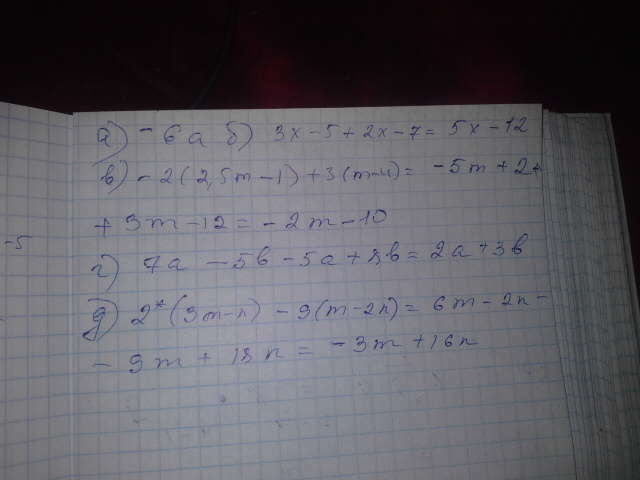 -5
а) -6а б) 3x-5+2x-7=5x-12
в) -2(2,5m-1)+3(m-4)=-5m+2+
+3m-12=-2m-10
г) 7a-5b-5a+8b=2a+3b
д) 2*(3m-n)-9(m-2n)=6m-2n-
-9m+18n=-3m+16n